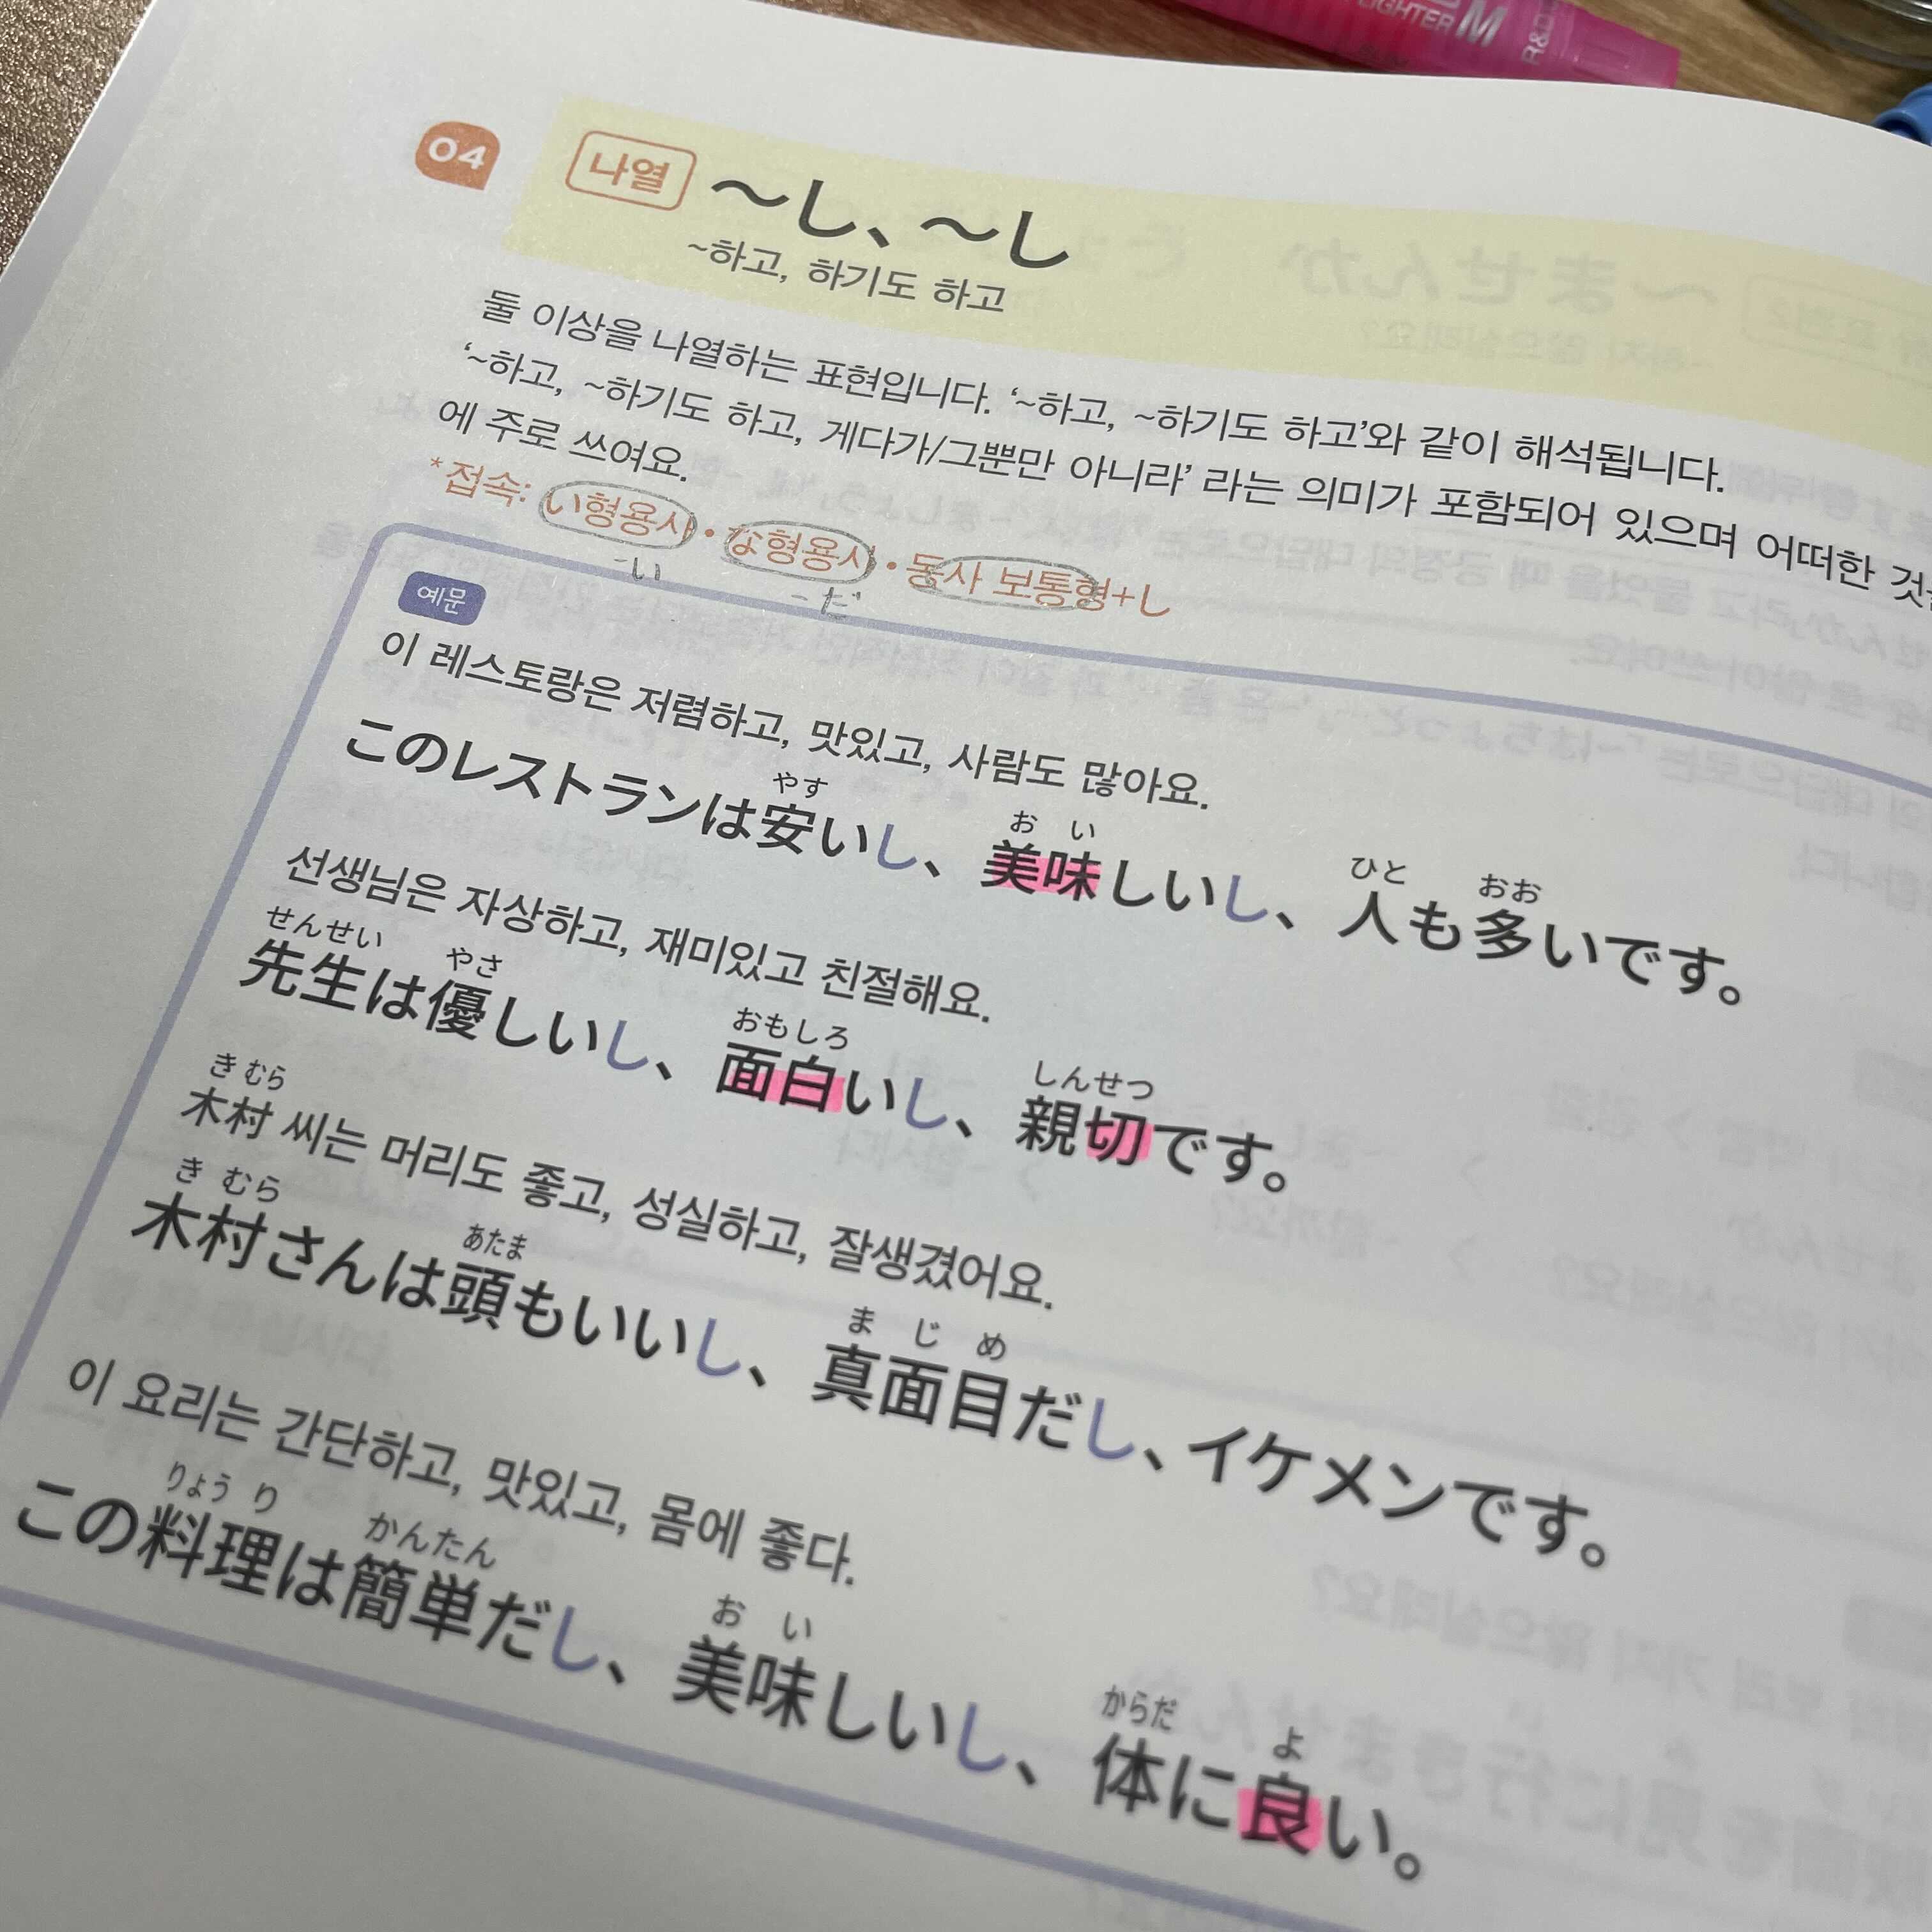 LIGHTER M
04
나열 ~し、~し
~하고, 하기도 하고
둘 이상을 나열하는 표현입니다. ‘~하고, ~하기도 하고’와 같이 해석됩니다.
‘~하고, ~하기도 하고, 게다가/그뿐만 아니라’ 라는 의미가 포함되어 있으며 어떠한
에 주로 쓰여요.
*접속: い형용사・な형용사・동사 보통형+し
-い -だ
예문
이 레스토랑은 저렴하고, 맛있고, 사람도 많아요.
やす お い ひと おお
このレストランは安いし、美味しいし、人も多いです。
선생님은 자상하고, 재미있고 친절해요.
せんせい やさ おもしろ しんせつ
先生は優しいし、面白いし、親切です。
き むら
木村 씨는 머리도 좋고, 성실하고, 잘생겼어요.
き むら あたま ま じ め
木村さんは頭もいいし、真面目だし、イケメンです。
이 요리는 간단하고, 맛있고, 몸에 좋다.
りょう り かんたん お い からだ よ
この料理は簡単だし、美味しいし、体に良い。